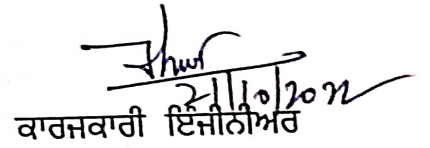 21/10/2022
ਕਾਰਜਕਾਰੀ ਇੰਜੀਨੀਅਰ